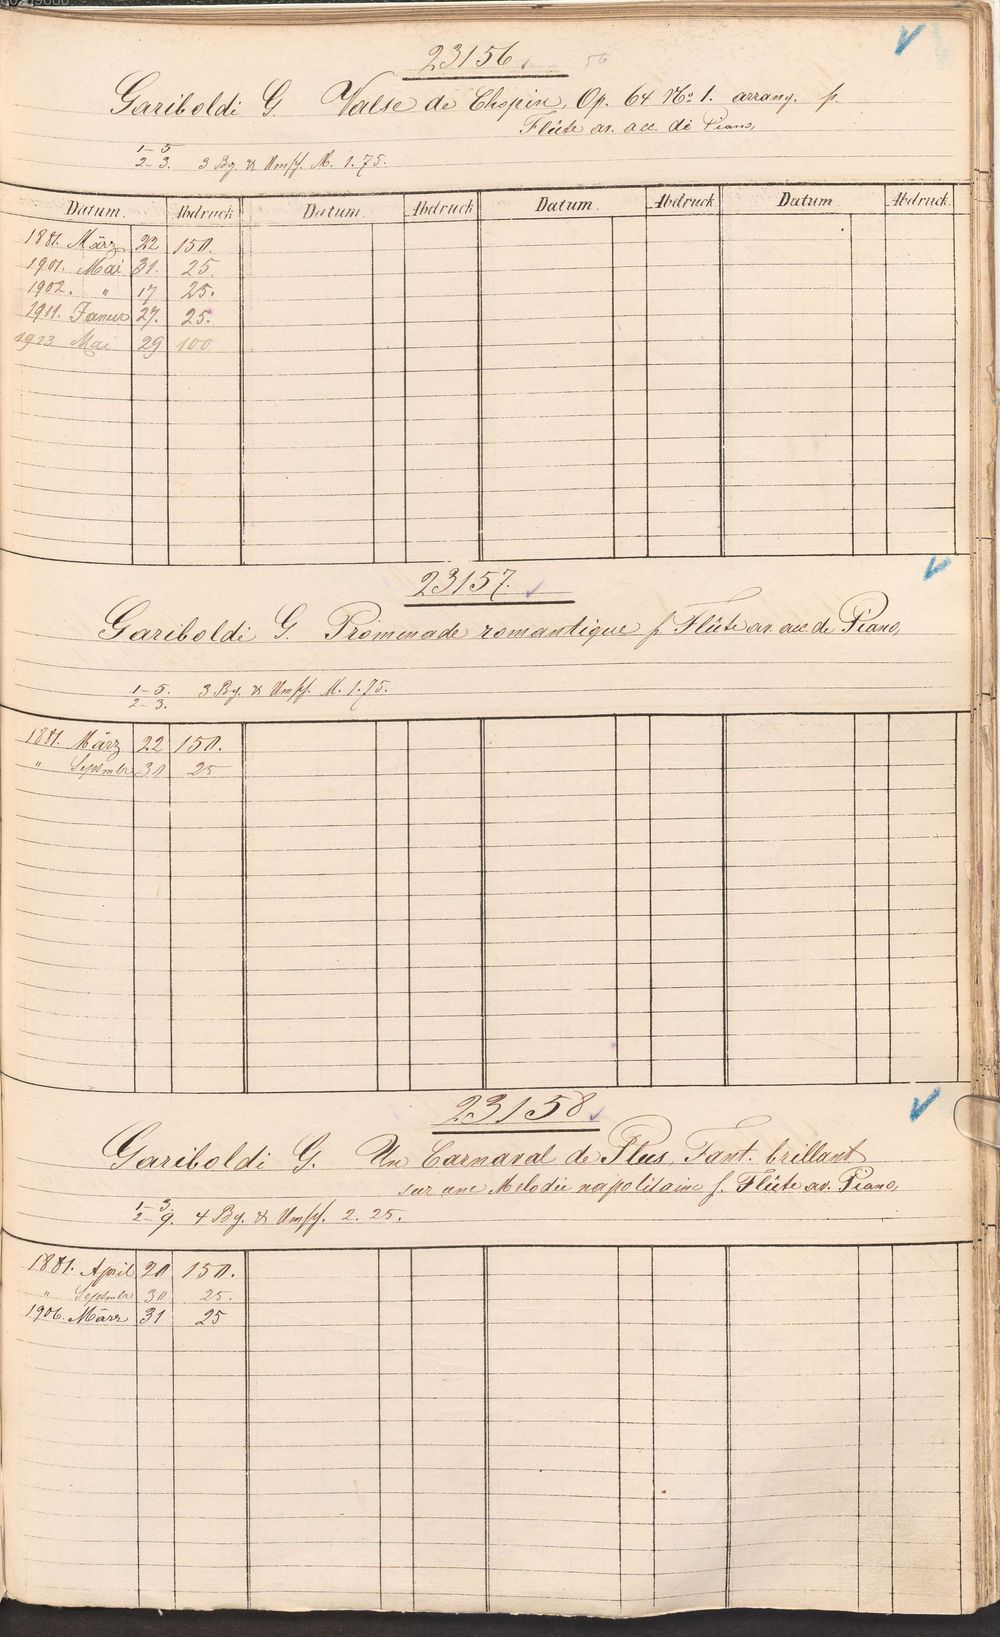 23156.
56
Gariboldi G. Valse de Chopin, Op. 64 No. 1. arrang. p.
Flûte av. acc. de Piano,
1-5
2-3. 3 Bg. & Umschl. M. 1.75.
Datum. Abdruck Datum. Abdruck Datum. Abdruck Datum Abdruck.
1881. März 22 150.
1901. Mai 31. 25.
1902. " 17 25.
1911. Januar 27. 25.
1913 Mai 29 100
23157.
Gariboldi G. Promenade romantique p. Flûte av. acc. de Piano,
1-5.
2-3. 3 Bg. & Umschl. M. 1.75.
1881. März 22 150.
" Septmbr 30 25
23158
Gariboldi G. Un Carnaval de Plus, Fant. brillant
sur une Melodie napolitaine f. Flûte av. Piano,
1-3.
2-9. 4 Bg. & Umschl. 2.25.
1881. April 20 150.
" Septmbr 30 25.
1906. März 31 25